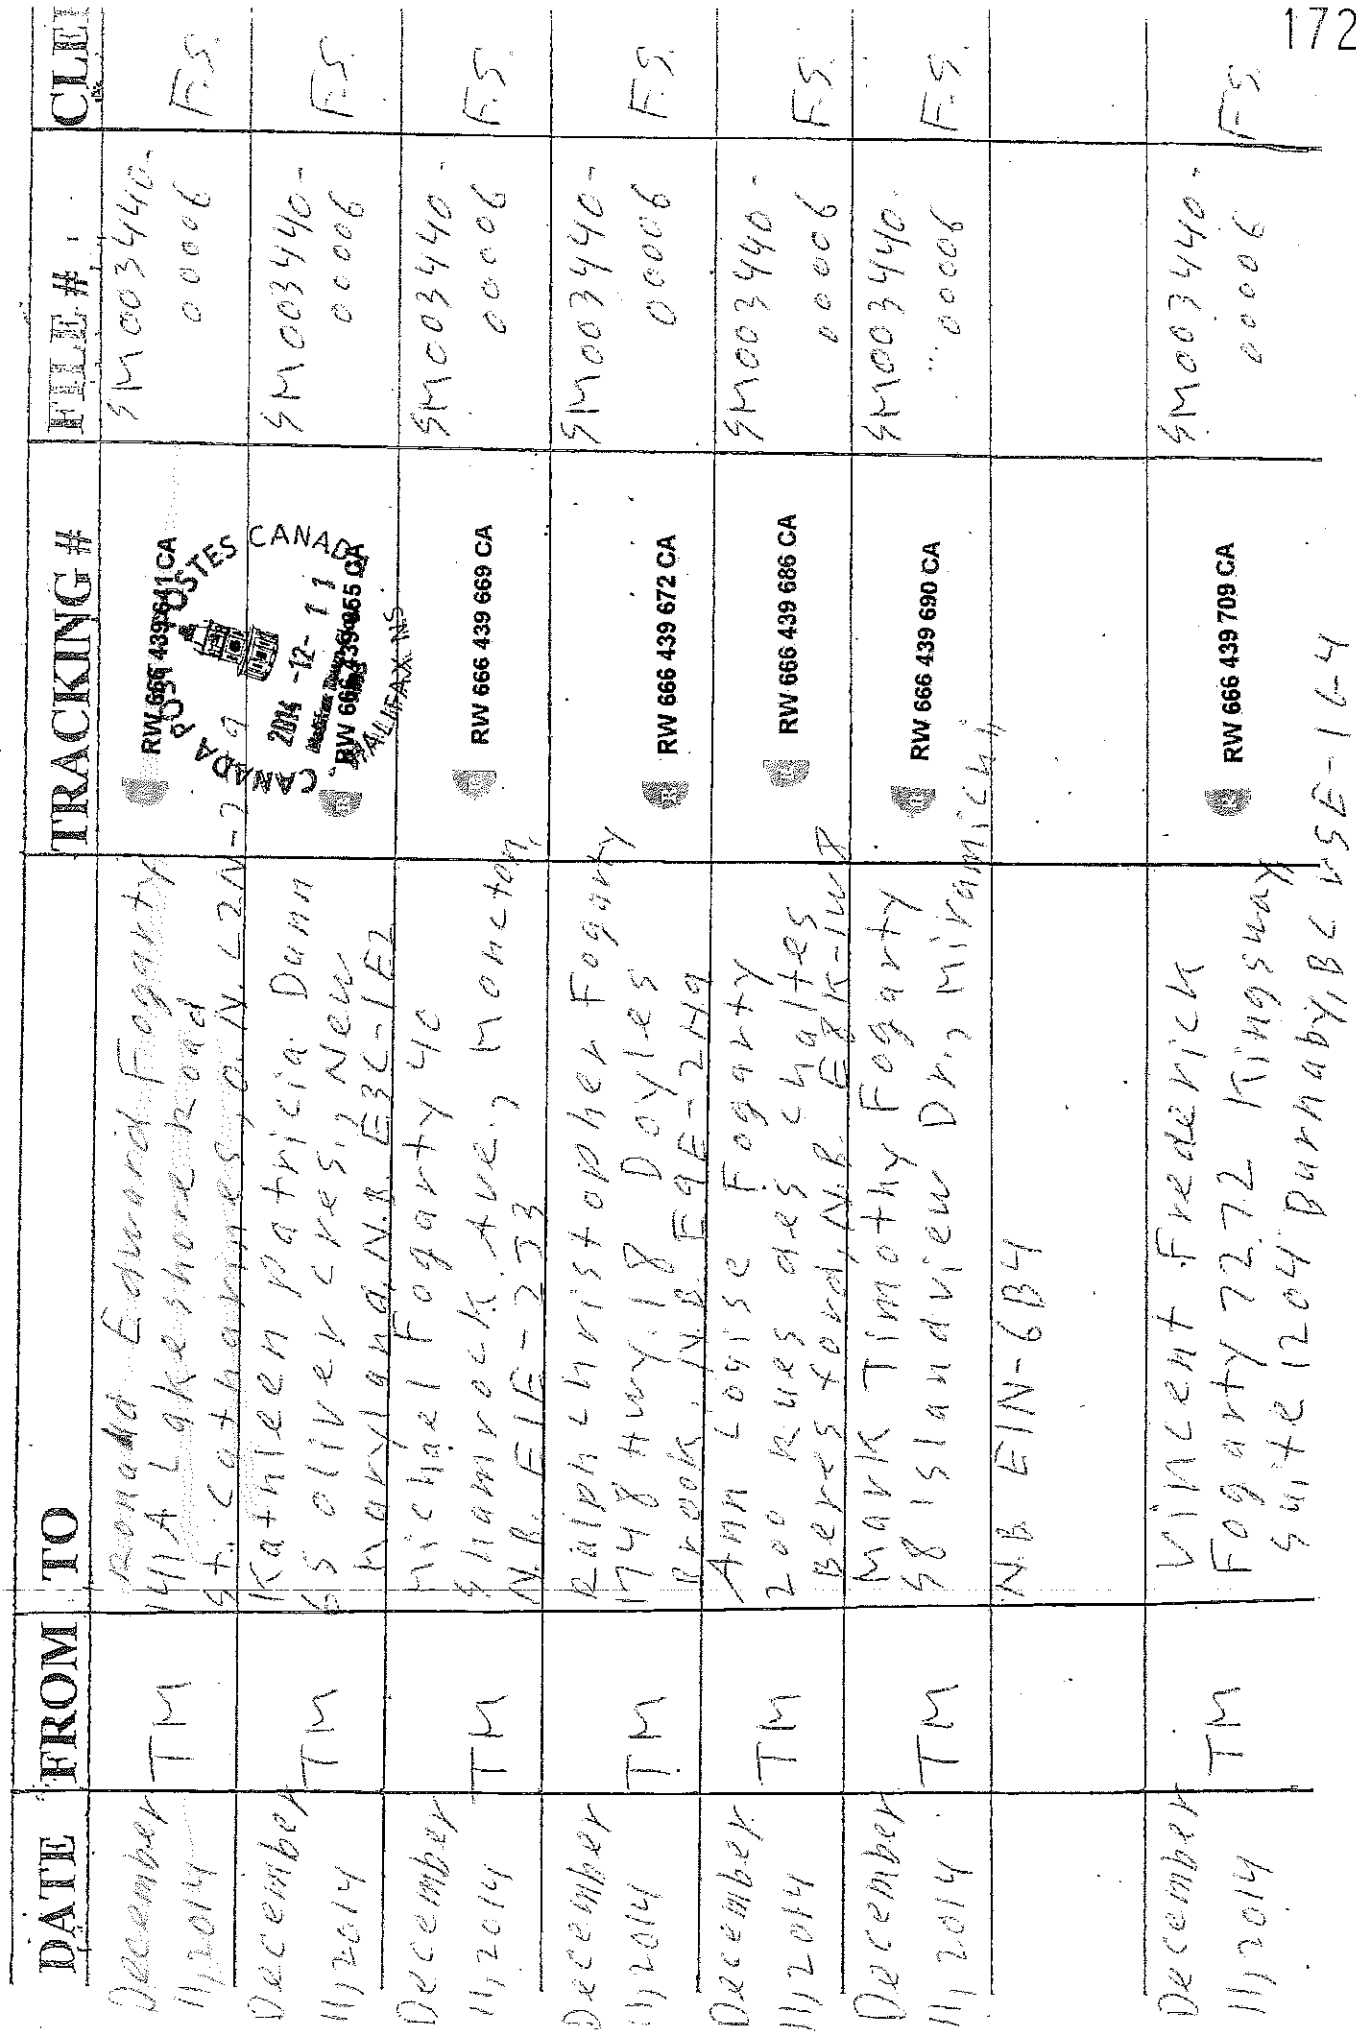 172
DATE FROM TO TRACKING # FILE # CLE
December
11, 2014
TM
Ronald Edward Fogarty
141A Lakeshore Road
St. Catharines, O.N. L2N-7
RW 666 439 641 CA
SM003440-
00006
F.S.
CANADA POST POSTES CANADA
2014 -12- 11
HALIFAX NS
December
11, 2014
TM
Kathleen Patricia Dunn
65 Oliver Cres., New
Maryland, N.B. E3C-1E2
RW 666 439 655 CA
SM003440-
00006
F.S.
December
11, 2014
TM
Michael Fogarty 40
Shamrock Ave., Moncton,
N.B. E1E-2J3
RW 666 439 669 CA
SM003440-
00006
F.S.
December
11, 2014
TM
Ralph Christopher Fogarty
1748 Hwy. 18 Doyles
Brook, N.B. E9E-2H9
RW 666 439 672 CA
SM003440-
00006
F.S.
December
11, 2014
TM
Ann Logise Fogarty
200 Rues des Chaltes
Beresford, N.B. E8K-1W8
RW 666 439 686 CA
SM003440-
00006
F.S.
December
11, 2014
TM
Mark Timothy Fogarty
58 Islandview Dr., Miramichi
N.B. E1N-6B4
RW 666 439 690 CA
SM003440-
00006
F.S.
December
11, 2014
TM
Vincent Frederick
Fogarty 7272 Kingsway
Suite 1204 Burnaby, BC V5E-1G4
RW 666 439 709 CA
SM003440-
00006
F.S.